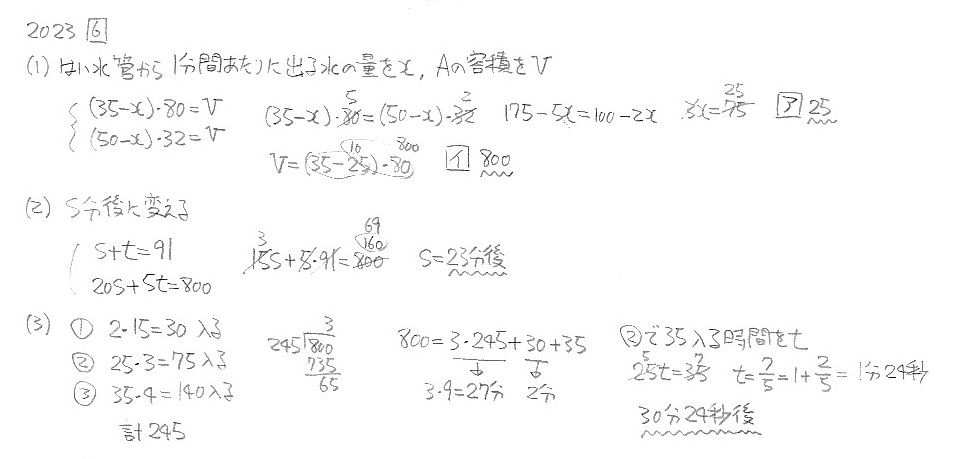 2023 6
(1) はい水管から1分間あたりに出る水の量をx, Aの容積をV
(35-x)・80=V (35-x)・80=(50-x)・32 5 2 175-5x=100-2x 3x=75 25 ア 25
(50-x)・32=V
V=(35-25)・80 10 800 イ 800
(2) S分後に変える
S+t=91 15S+5・91=800 3 160 69 S=23分後
20S+5t=800
(3) ① 2・15=30 入る
② 25・3=75 入る
③ 35・4=140 入る
計 245
245 800 3
735
65
800=3・245+30+35
3・9=27分 2分
②で35入る時間をt
25t=35 5 7 t=7/5=1+2/5=1分24秒
30分24秒後